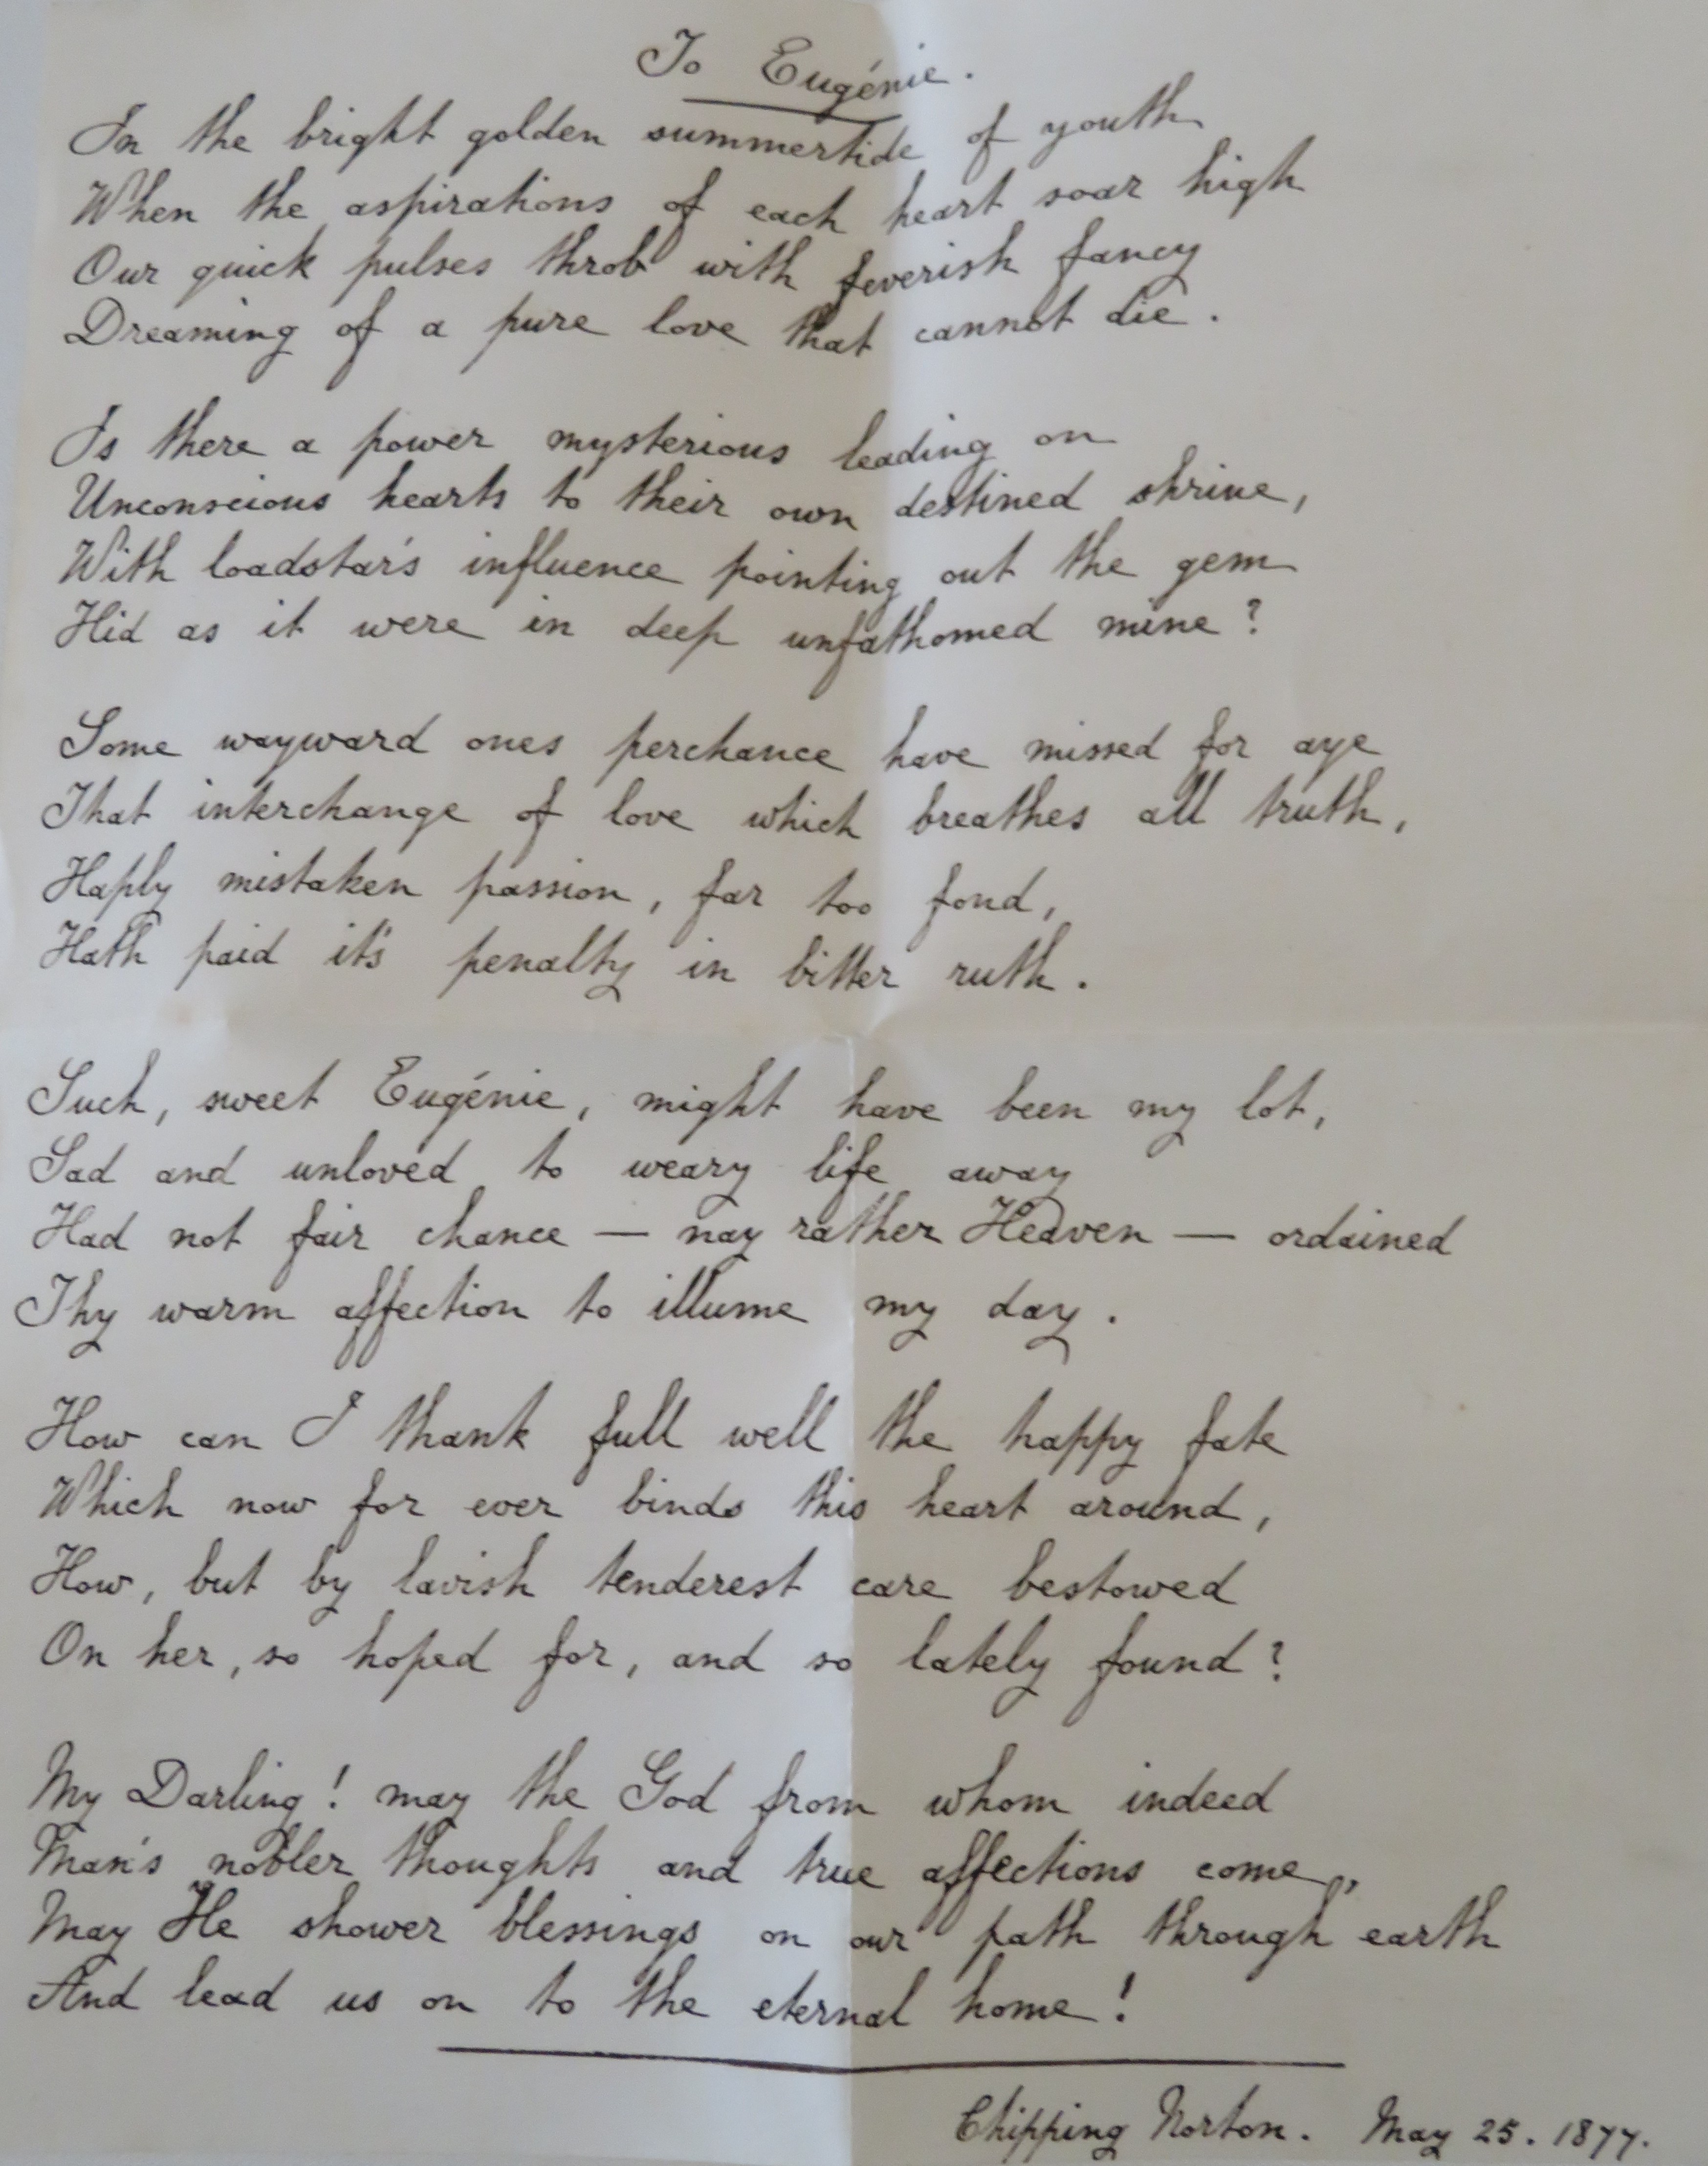 To Eugénie.
In the bright golden summertide of youth
When the aspirations of each heart soar high
Our quick pulses throb with feverish fancy
Dreaming of a pure love that cannot die.
Is there a power mysterious leading on
Unconscious hearts to their own destined shrine,
With loadstar's influence pointing out the gem
Hid as it were in deep unfathomed mine?
Some wayward ones perchance have missed for aye
That interchange of love which breathes all truth,
Haply mistaken passion, far too fond,
Hath paid it's penalty in bitter ruth.
Such, sweet Eugénie, might have been my lot,
Sad and unloved to weary life away
Had not fair chance — nay rather Heaven — ordained
Thy warm affection to illume my day.
How can I thank full well the happy fate
Which now for ever binds this heart around,
How, but by lavish tenderest care bestowed
On her, so hoped for, and so lately found?
My Darling! may the God from whom indeed
Man's nobler thoughts and true affections come,
May He shower blessings on our path through earth
And lead us on to the eternal home!
Chipping Norton. May 25. 1877.